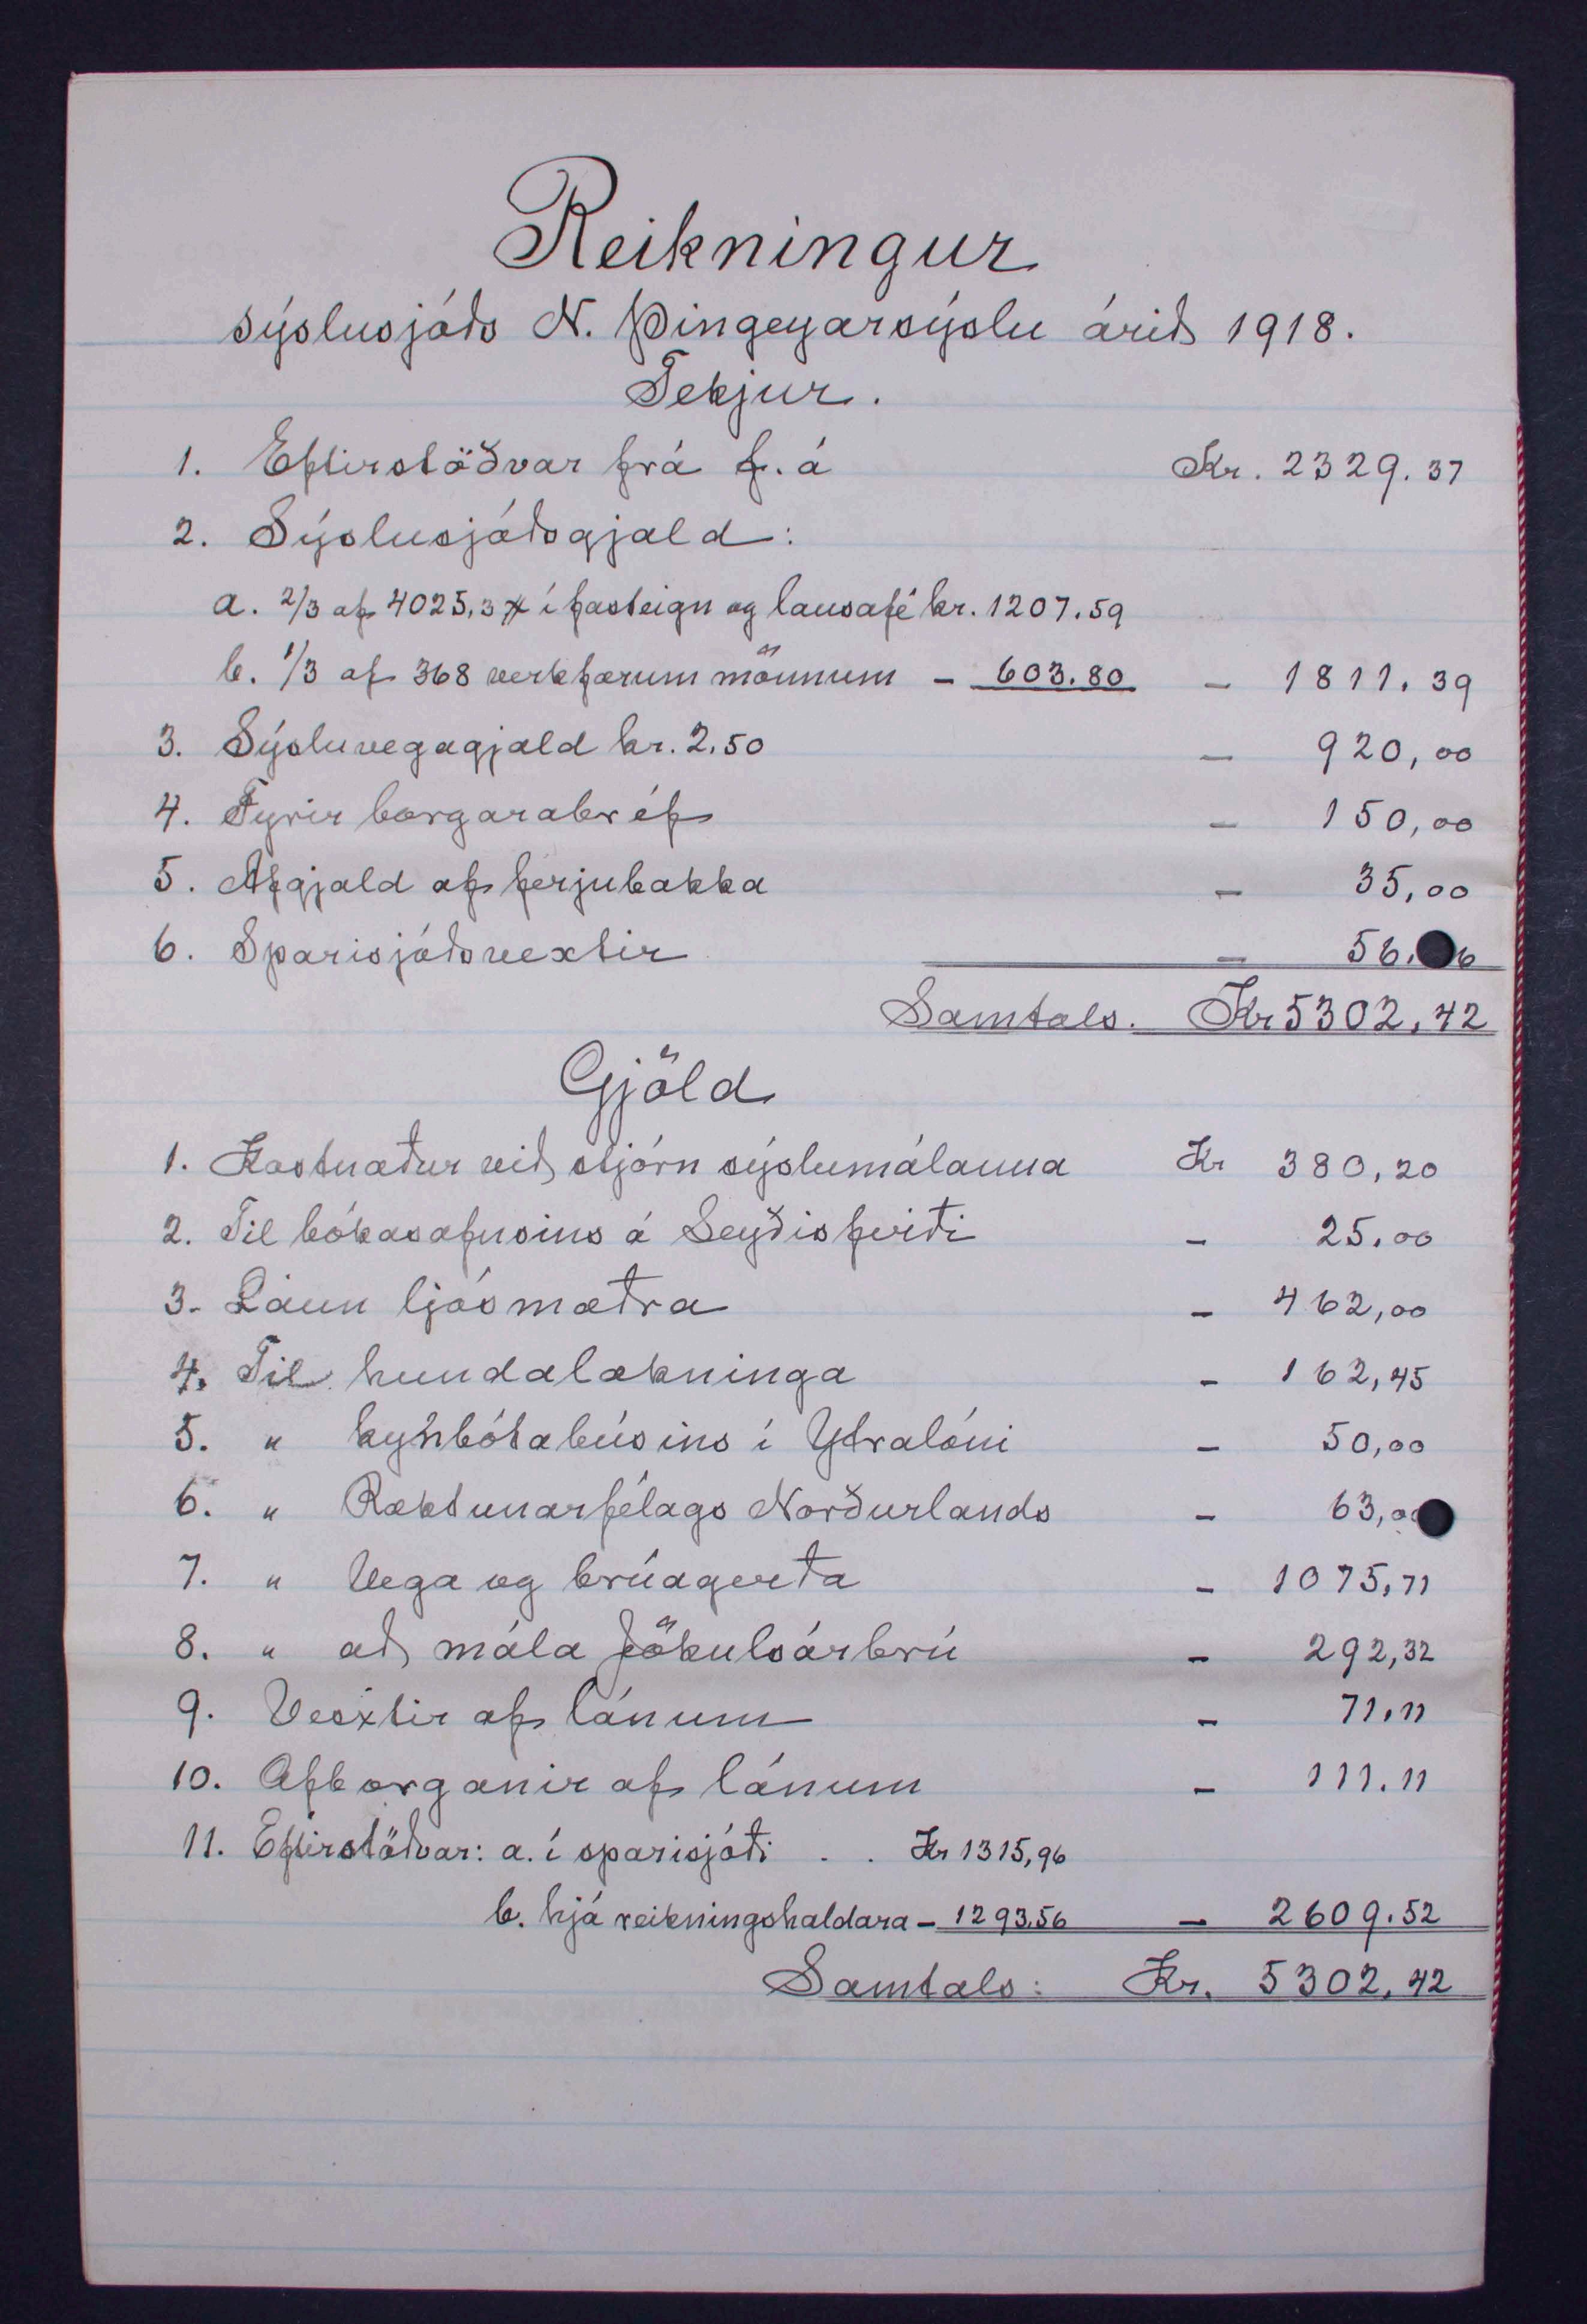 Reikningur
sýslusjóðs N. Þingeyarsýslu árið 1918.
Tekjur.
1. Eftirstöðvar frá f. á Kr. 2329.37
2. Sýslusjóðsgjald:
a. 2/3 af 4025,3 í fasteign og lausafé kr. 1207.59
b. 1/3 af 368 verkfærum mönnum - 603.80 - 1811.39
3. Sýsluvegagjald kr. 2.50 - 920,00
4. Fyrir borgarabréf - 150,00
5. Afgjald af ferjubakka - 35,00
6. Sparisjóðsvextir - 56. 6
Samtals. Kr 5302,42
Gjöld
1. Kostnaður við stjórn sýslumálanna Kr 380,20
2. Til bókasafnsins á Seyðisfirði - 25.00
3. Laun ljósmæðra - 462,00
4. Til hundalækninga - 162,45
5. " kynbótabúsins í Ytralóni - 50,00
6. " Ræktunarfélags Norðurlands - 63,00
7. " Vega og brúagerða - 1075,71
8. " að mála Jökulsárbrú - 292,32
9. Vextir af lánum - 71.11
10. Afborganir af lánum - 111.11
11. Eftirstöðvar: a. í sparisjóði . . Kr 1315,96
b. hjá reikningshaldara - 1293.56 - 2609.52
Samtals: Kr. 5302,42